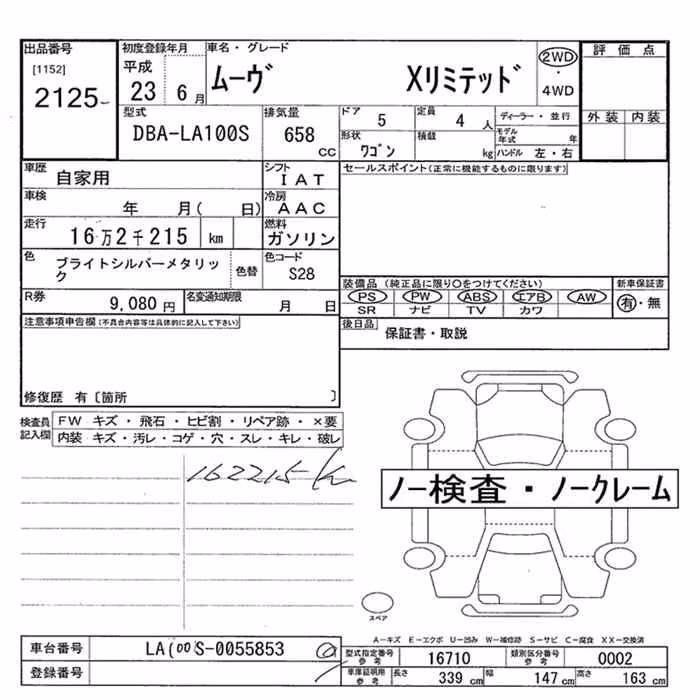 出品番号
[1152]
2125
初度登録年月
平成
23 6 月
車名・グレード
ムーヴ Xリミテッド
2WD
・
4WD
評価点
外装 内装
型式
DBA-LA100S
排気量
658
CC
ドア
5
定員
4 人
ディーラー・並行
形状
ワゴン
積載
kg
モデル年式 年
ハンドル 左・右
車歴
自家用
シフト
IAT
セールスポイント(正常に機能するものに限ります)
車検
年 月( 日)
冷房
AAC
走行
16万2千215 km
燃料
ガソリン
色
ブライトシルバーメタリック
色替
色コード
S28
装備品(純正品に限り〇をつけてください)
新車保証書
PS PW ABS エアB AW
有・無
SR ナビ TV カワ
R券
9,080 円
名変通知期限
月 日
後日品
保証書・取説
注意事項申告欄(不具合内容等は具体的に記入して下さい)
修復歴 有〔箇所 〕
検査員記入欄
FW キズ・飛石・ヒビ割・リペア跡・×要
内装 キズ・汚レ・コゲ・穴・スレ・キレ・破レ
162215 K
ノー検査・ノークレーム
スペア
A-キズ E-エクボ U-凹み W-補修跡 S-サビ C-腐食 XX-交換済
車台番号
LA100S-0055853
型式指定番号
参考
16710
類別区分番号
参考
0002
登録番号
車庫証明用
参考
長さ
339 cm
幅
147 cm
高さ
163 cm